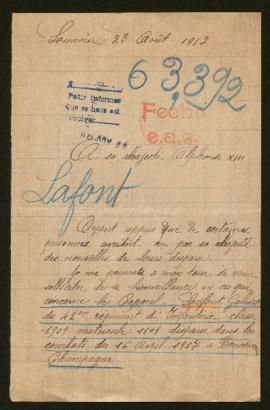 23 Août 1917
63,392
Pedir informes
Que se hace esa
Fecho
e.a.a.
A sa Majesté Alphonse XIII
Lafont
Ayant appris que de certaines
personnes avaient eu par sa Majesté
des nouvelles de leurs disparu
Je me permets a mon tour de venir
solliciter de sa bienveillance en ce qui
concerne le Caporal Lafont
du 42ème regiment d'Infanterie classe
1909 matricule 1101 disparu dans les
combats du 16 Avril 1917 a
Champagne